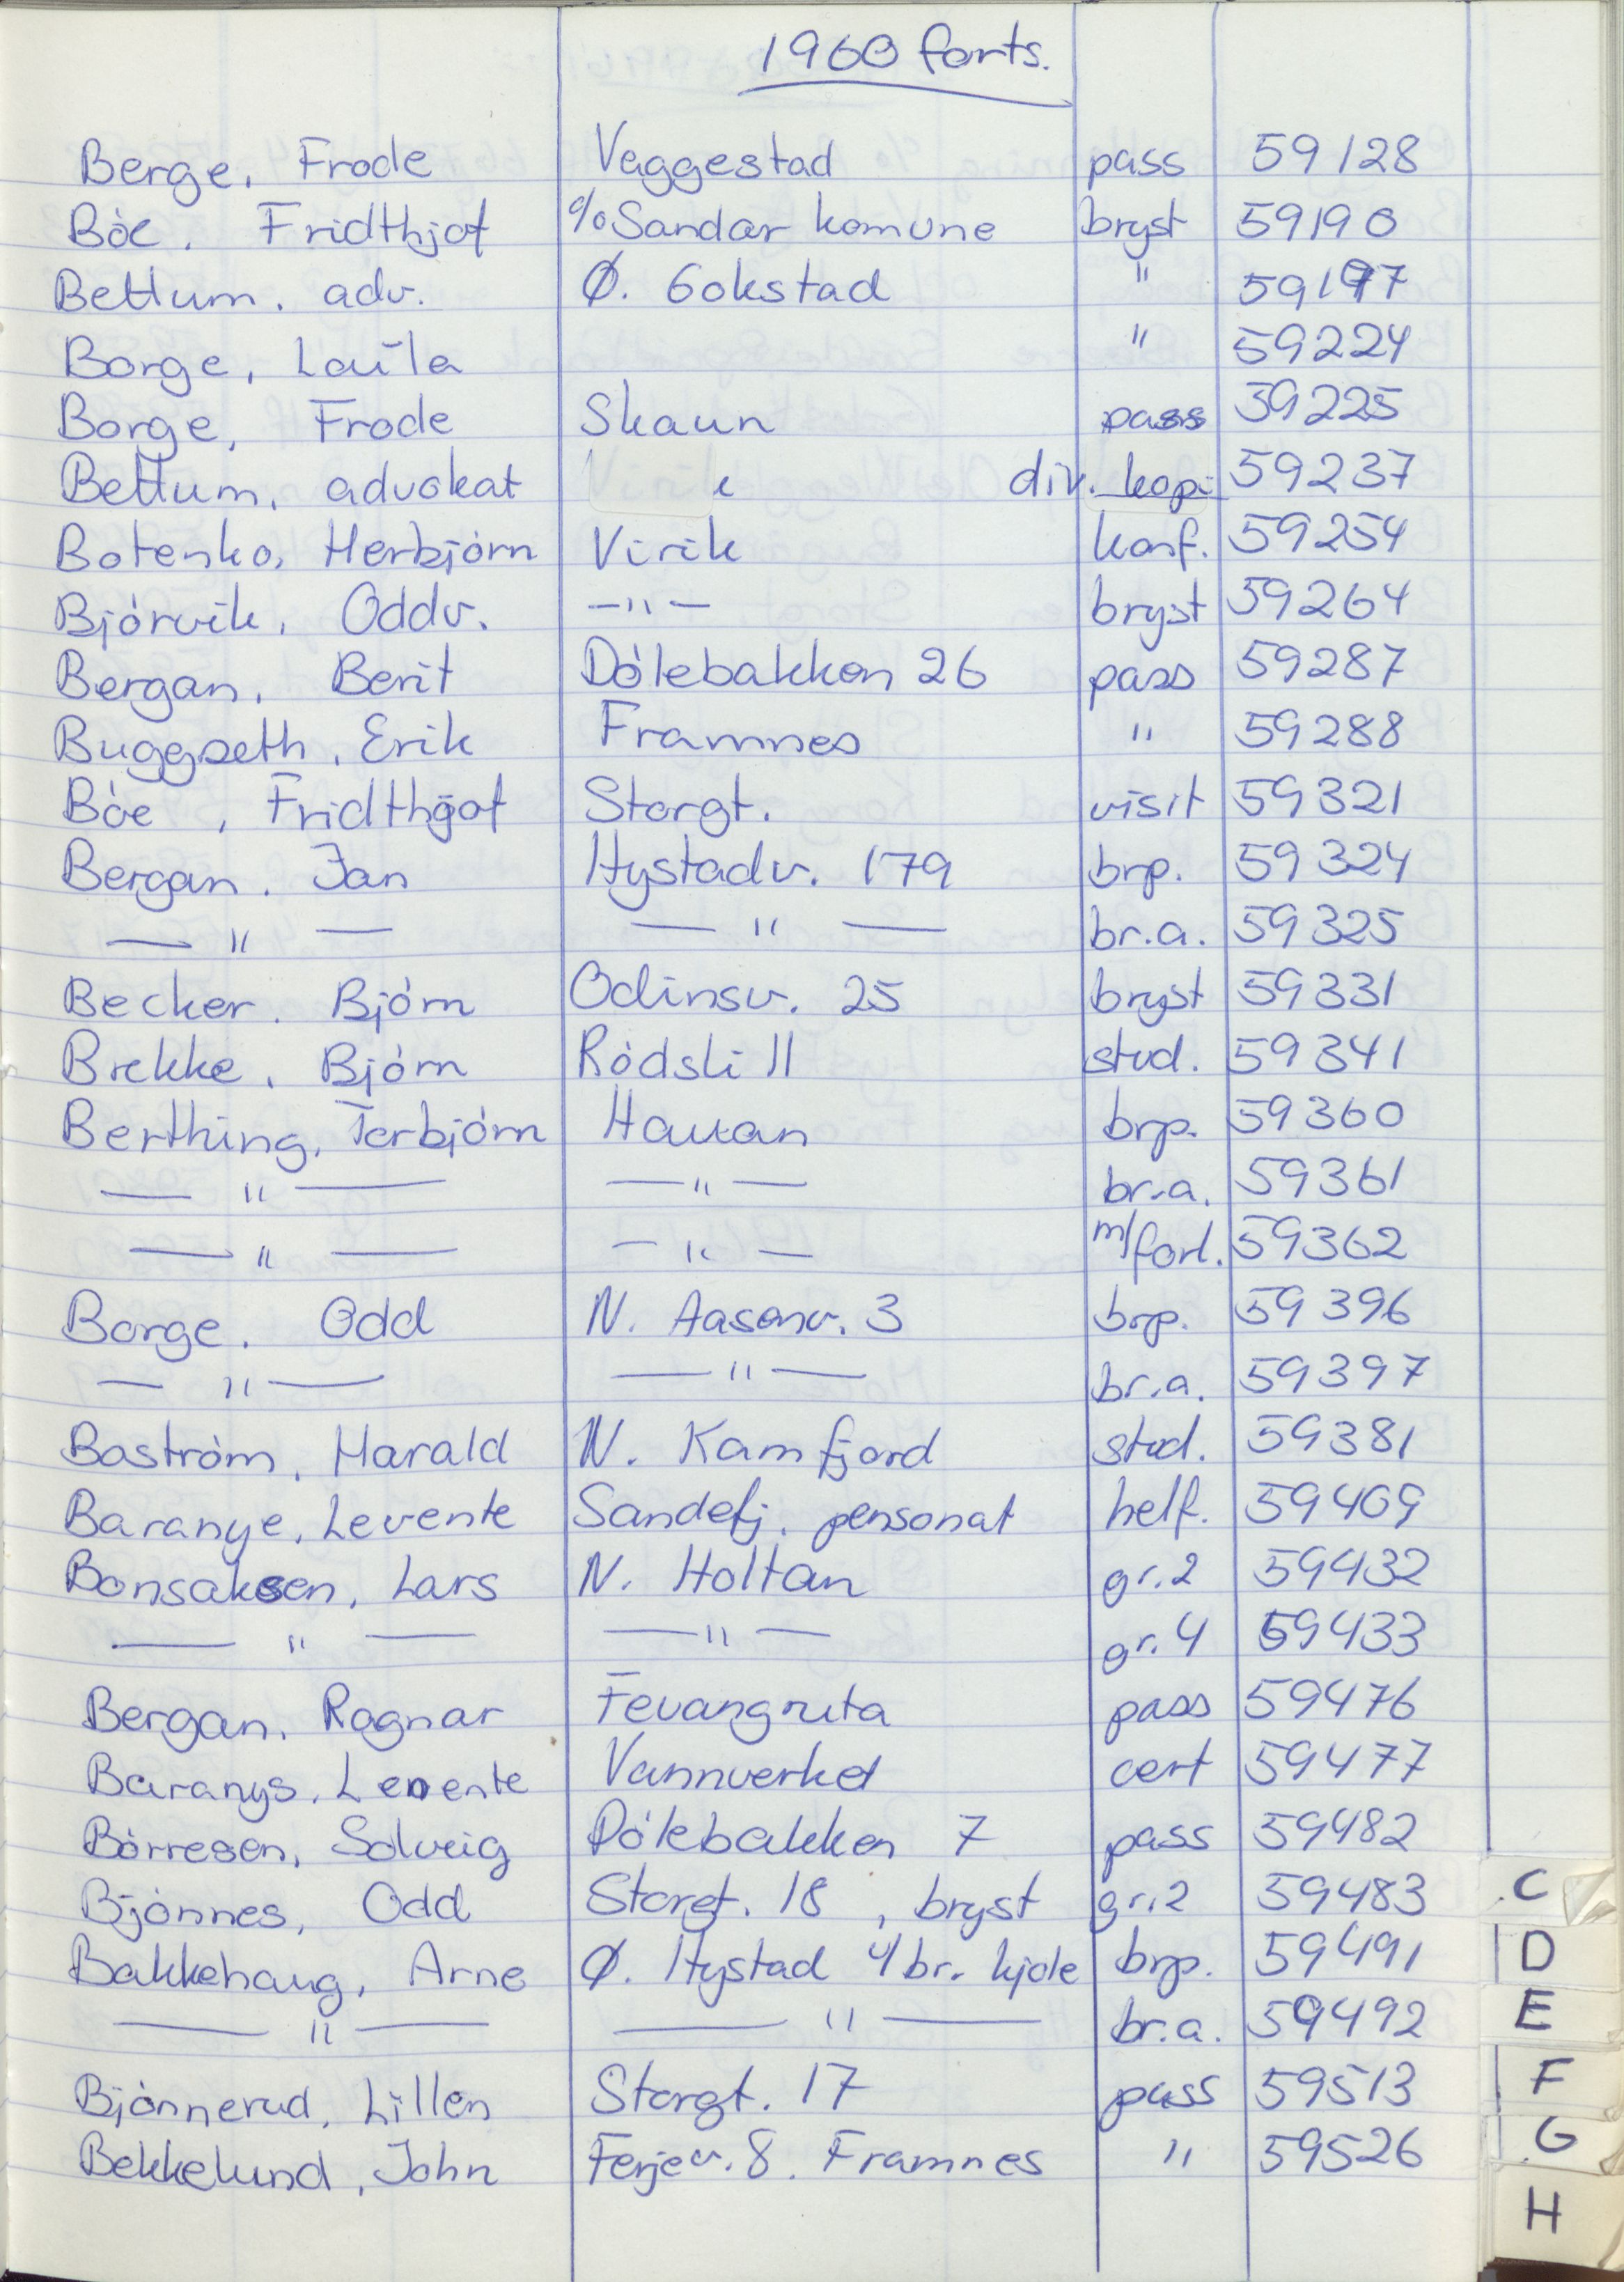 1960 forts.
Berge, Frode Vaggestad pass 59128
Bòe, Fridthjof % Sandar komune bryst 59190
Bettum, adv. Ø. Gokstad " 59197
Borge, Laila " 59224
Borge, Frode Skaun pass 59225
Bettum, advokat div. kopi 59237
Botenko, Herbjórn Virik konf. 59254
Bjórvik, Oddv. —"— bryst 59264
Bergan, Berit Dólebakken 26 pass 59287
Buggseth, Erik Framnes " 59288
Bòe, Fridthjof Storgt. visit 59321
Bergan, Jan Hystadv. 179 brp. 59324
—"— —"— br.a. 59325
Becker, Bjórn Odinsv. 25 bryst 59331
Brekke, Bjórn Ródsli 11 stud. 59341
Berthing, Torbjórn Haukan brp. 59360
—"— —"— br.a. 59361
—"— —"— m/forl. 59362
Borge, Odd N. Aasenv. 3 brp. 59396
—"— —"— br.a. 59397
Bostróm, Harald N. Kamfjord stud. 59381
Baranye, Levente Sandefj. pensonat helf. 59409
Bonsaksen, Lars N. Holtan gr.2 59432
—"— —"— gr.4 59433
Bergan, Ragnar Fevangruta pass 59476
Baranys, Levente Vannverket cert 59477
Bórresen, Solveig Dólebakken 7 pass 59482
Bjónnes, Odd Storgt. 18, bryst gr.2 59483
Bakkehaug, Arne Ø. Hystad 4 br. kjole brp. 59491
—"— —"— br.a. 59492
Bjónnerud, Lillen Storgt. 17 pass 59513
Bekkelund, John Ferjev. 8. Framnes " 59526
C
D
E
F
G
H